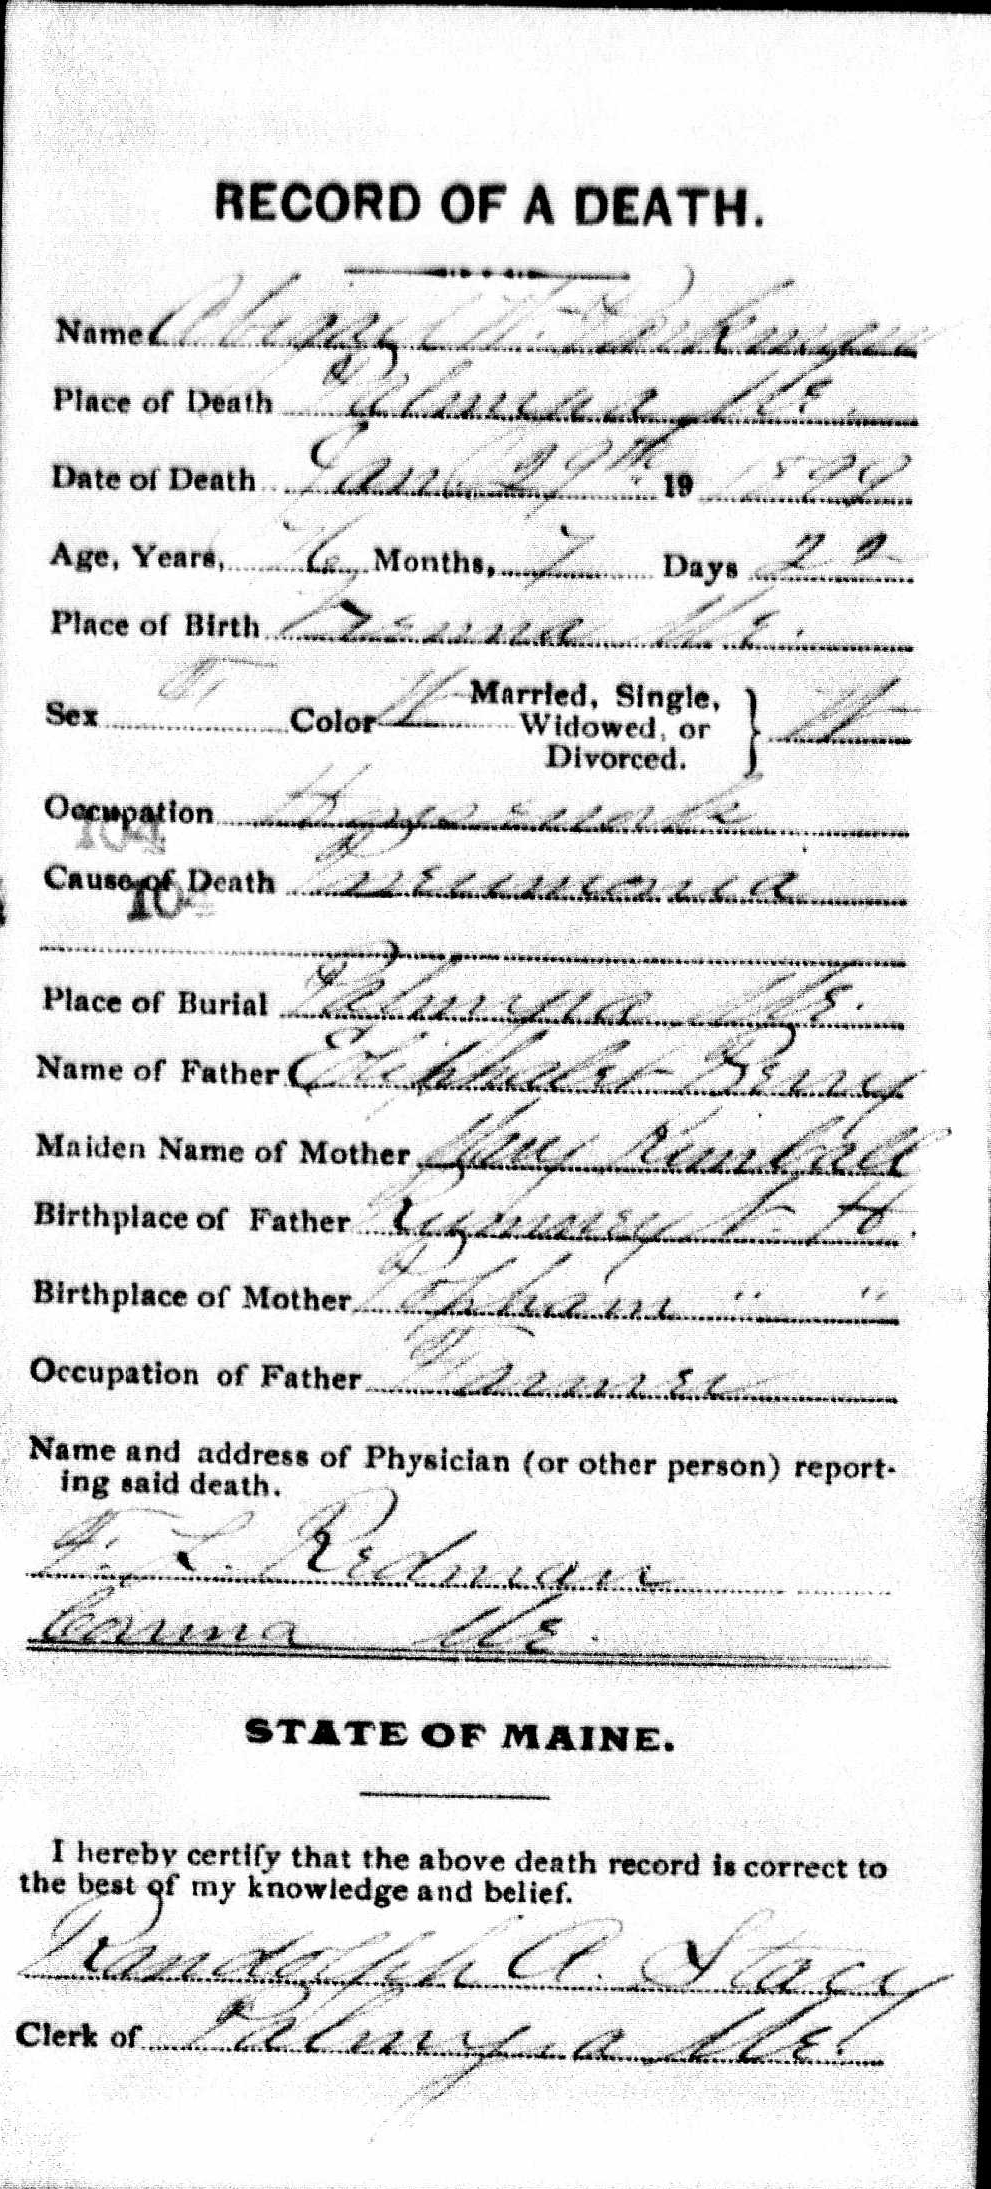 RECORD OF A DEATH.
Name Abigail W. Parkman
Place of Death Palmyra Me.
Date of Death Jan 29th 19 1899
Age, Years, 76 Months, 7 Days 22
Place of Birth Vienna Me.
Sex F Color W Married, Single, Widowed, or Divorced. } W
Occupation
104
Cause of Death Pneumonia
10
Place of Burial Palmyra Me.
Name of Father Eliphalet Berry
Maiden Name of Mother Mary Kimball
Birthplace of Father Rumney N. H.
Birthplace of Mother " "
Occupation of Father Farmer
Name and address of Physician (or other person) report-
ing said death.
F. L. Redman
Corinna Me.
STATE OF MAINE.
I hereby certify that the above death record is correct to
the best of my knowledge and belief.
Randolph A. Stacy
Clerk of Palmyra Me.